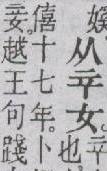 从䇂女䇂
也
僖十七年。卜
妾。越王句踐